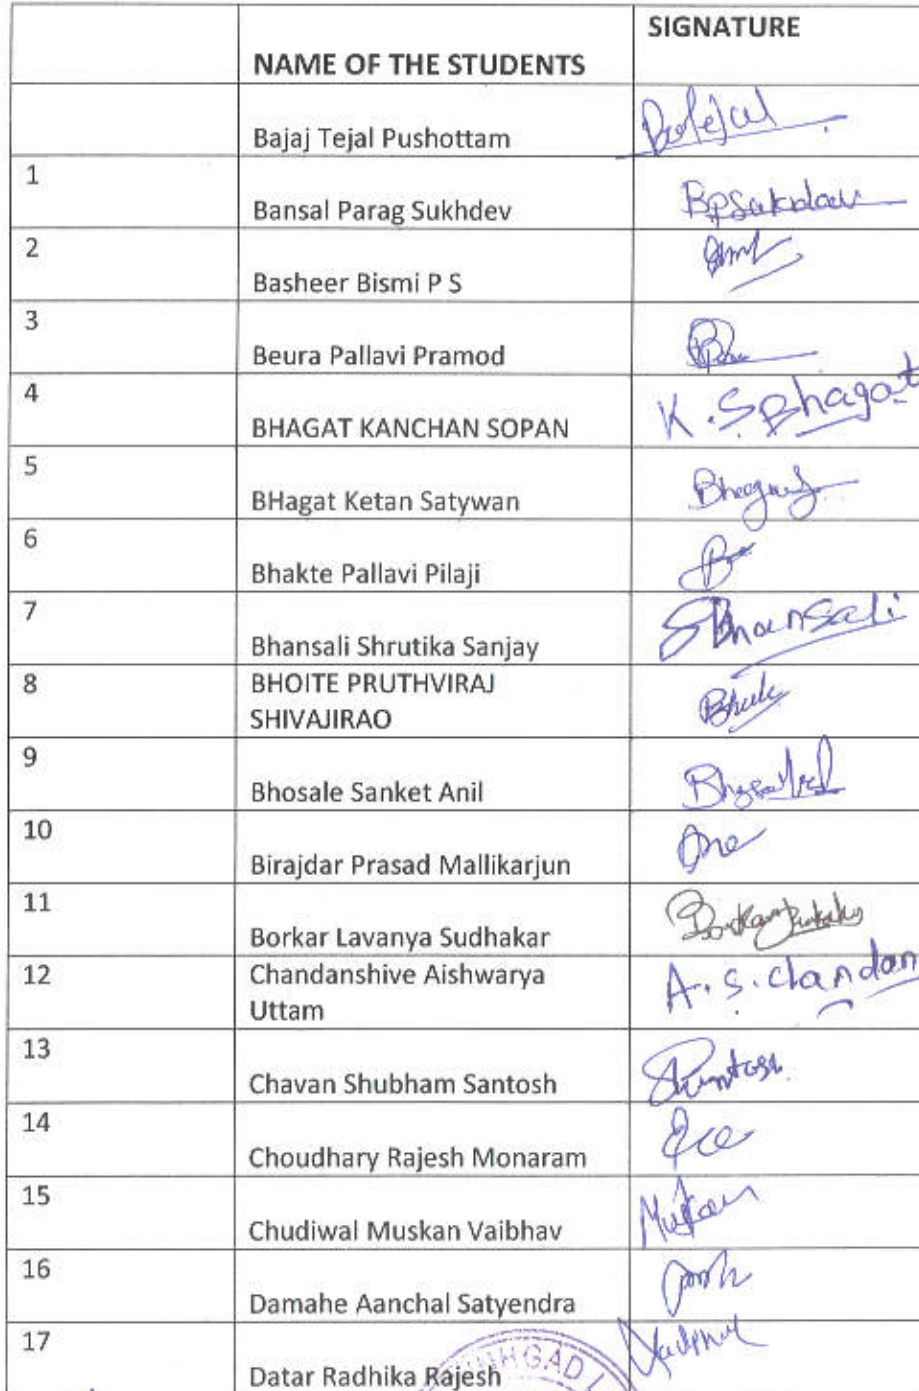 SIGNATURE
NAME OF THE STUDENTS
Bajaj Tejal Pushottam
1
Bansal Parag Sukhdev
BPSukhdev
2
Basheer Bismi P S
3
Beura Pallavi Pramod
4
BHAGAT KANCHAN SOPAN
K.S Bhagat
5
BHagat Ketan Satywan
6
Bhakte Pallavi Pilaji
7
Bhansali Shrutika Sanjay
SBhansali
8
BHOITE PRUTHVIRAJ
SHIVAJIRAO
9
Bhosale Sanket Anil
10
Birajdar Prasad Mallikarjun
11
Borkar Lavanya Sudhakar
12
Chandanshive Aishwarya
Uttam
A.S.chandan
13
Chavan Shubham Santosh
14
Choudhary Rajesh Monaram
15
Chudiwal Muskan Vaibhav
16
Damahe Aanchal Satyendra
17
Datar Radhika Rajesh